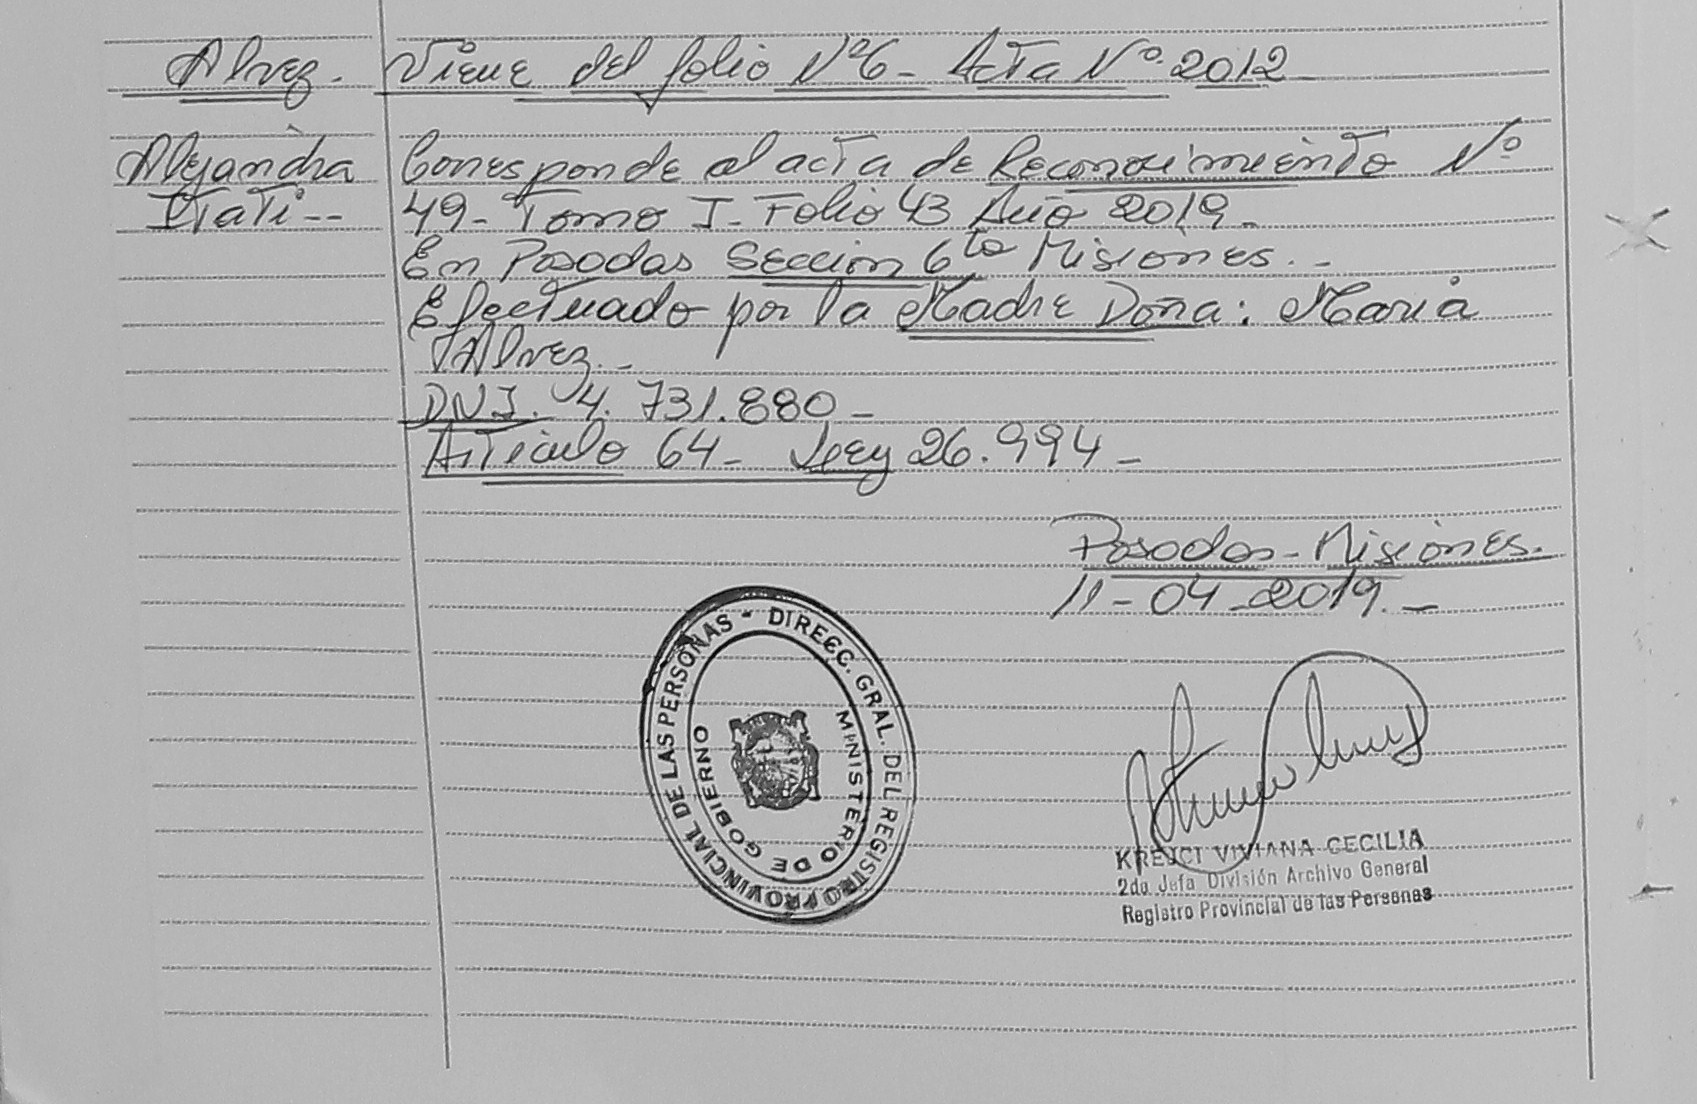 Alvez. Viene del folio Nº6 - Acta Nº. 2012
Alejandra Corresponde al acta de Reconocimiento Nº
Itatí -- 49 - Tomo I - Folio 43 Año 2019 -
En Posadas Sección 6ta Misiones. -
Efectuado por la Madre Doña: María
Alvez. -
DNI. 4.731.880 -
Artículo 64 - Ley 26.994 -
Posadas - Misiones.
11 - 04 - 2019. -
DIRECC. GRAL. DEL REGISTRO PROVINCIAL DE LAS PERSONAS -
MINISTERIO DE GOBIERNO
KREJCI VIVIANA CECILIA
2da. Jefa División Archivo General
Registro Provincial de las Personas